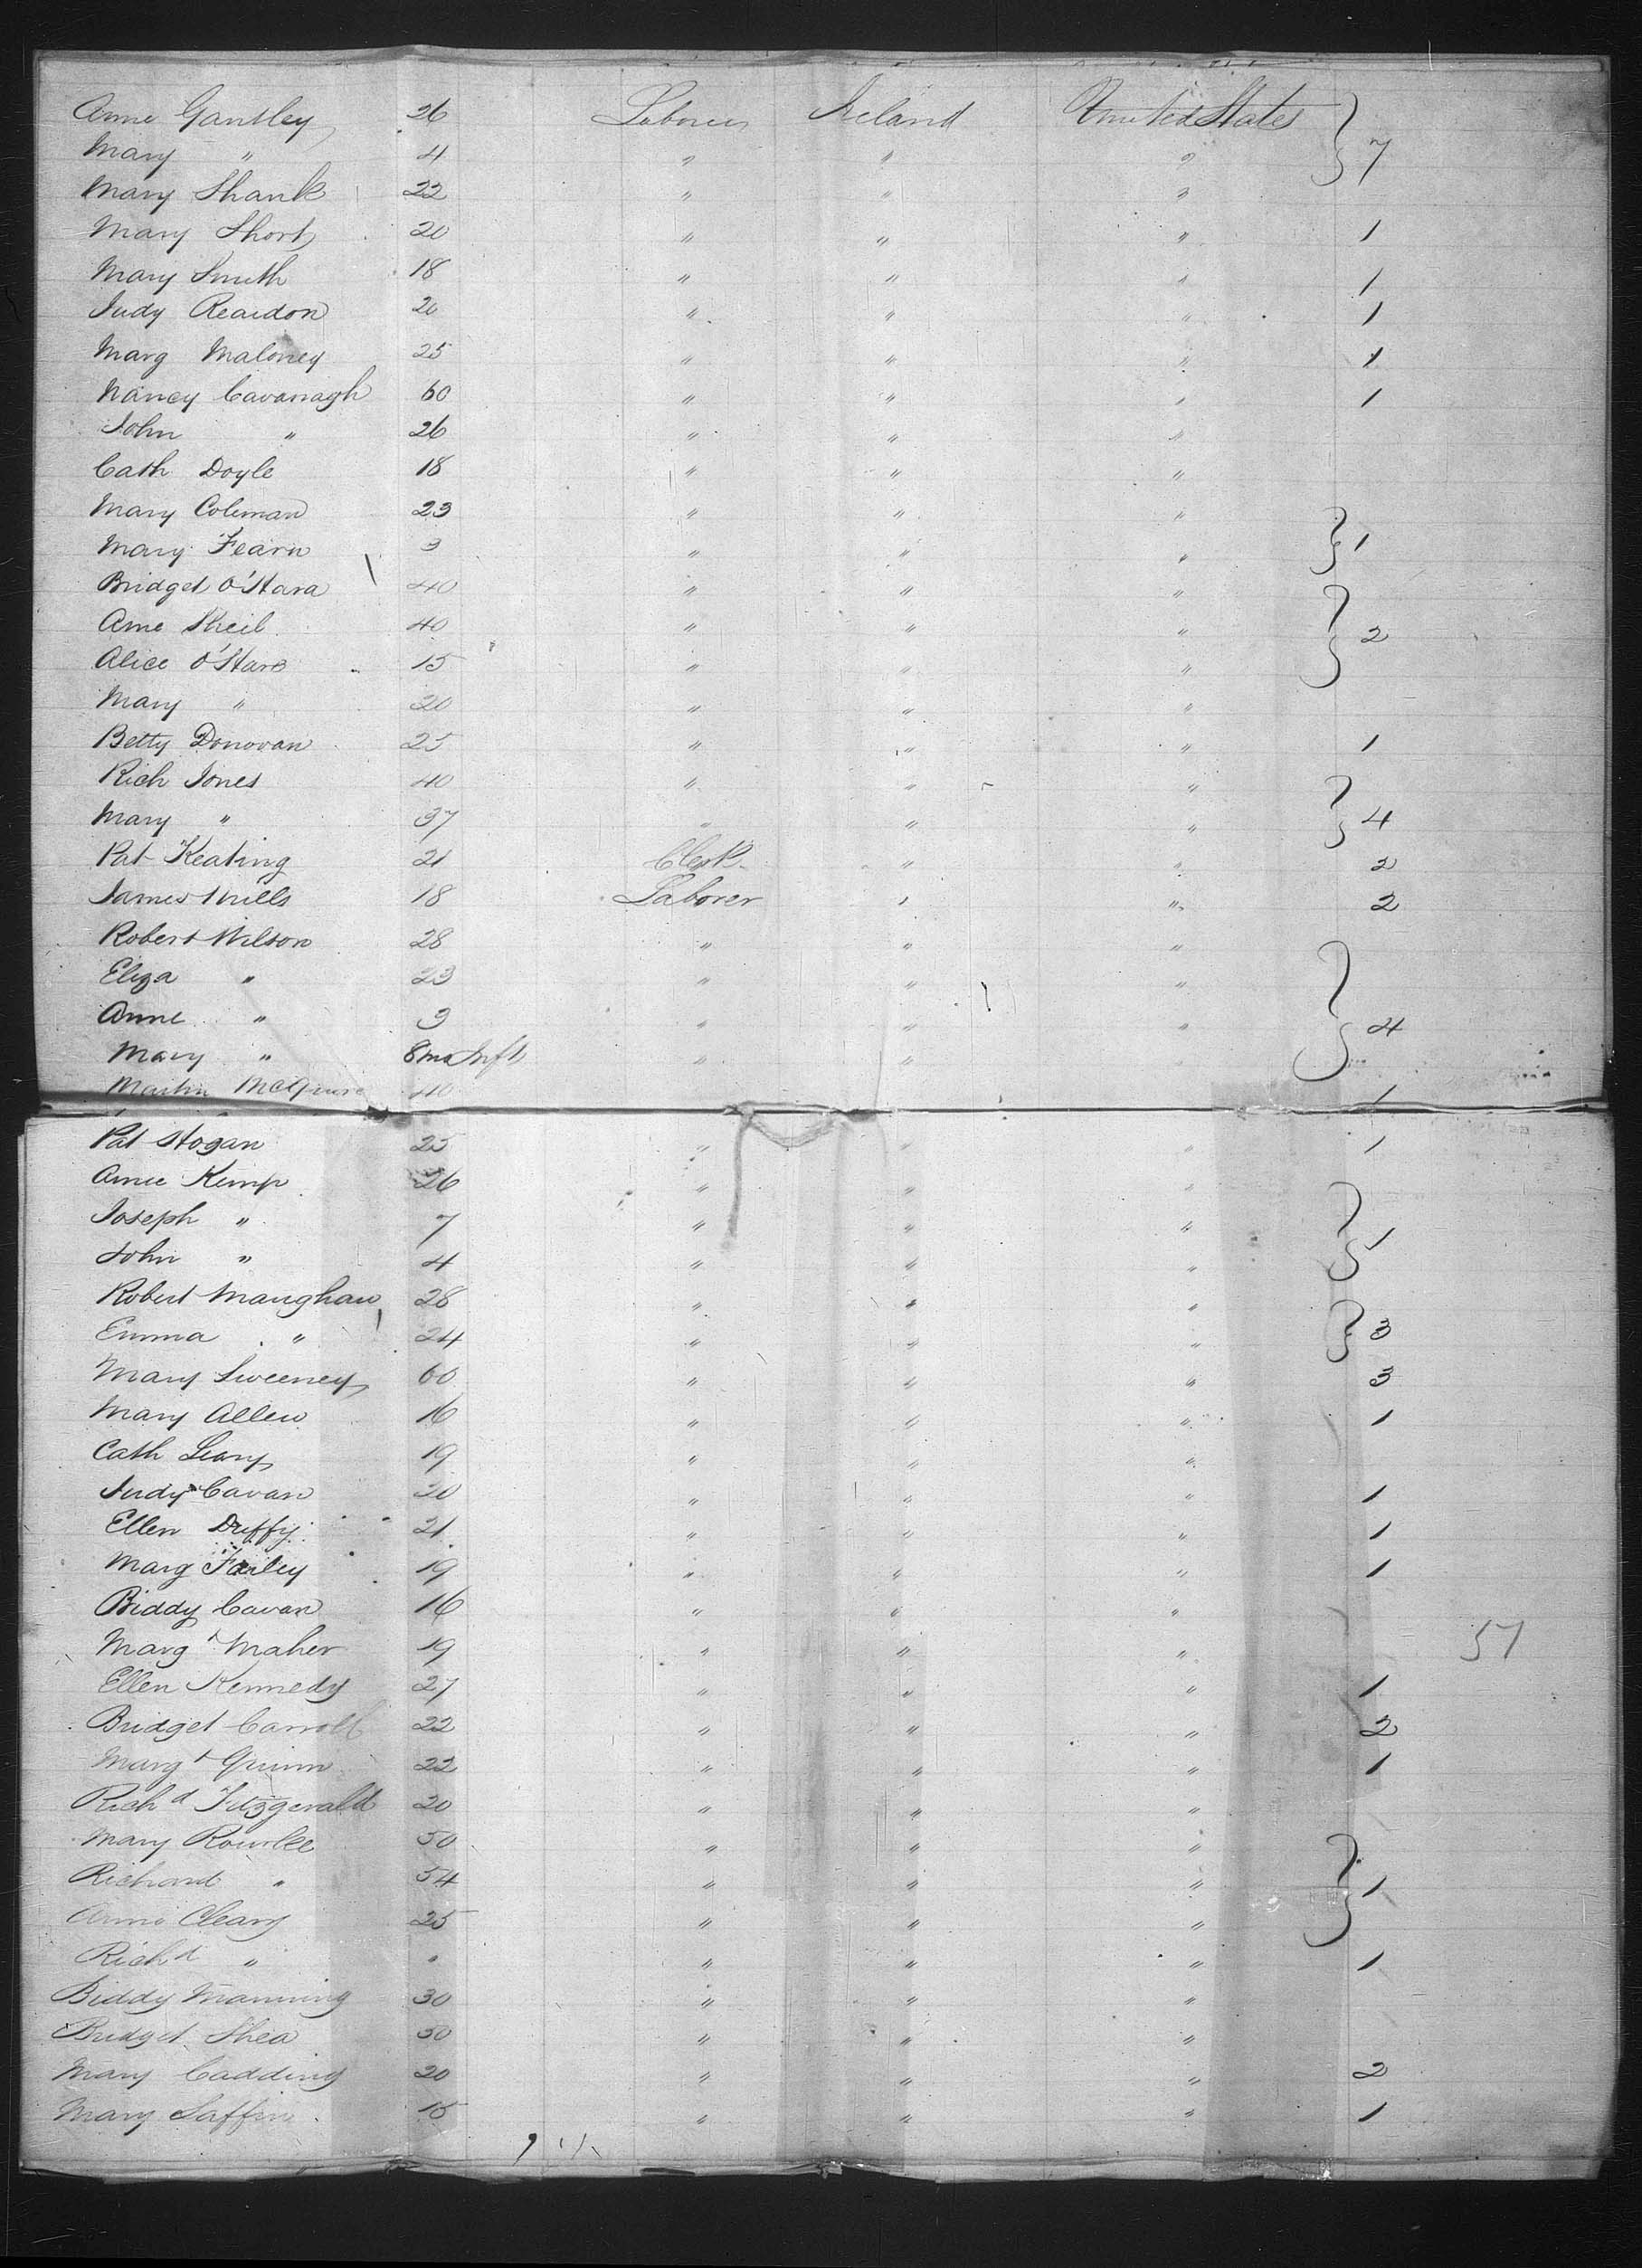 Anne Gantley 26 Laborer Ireland United States
Mary " 4 " " " } 7
Mary Shank 22 " " "
Mary Short 20 " " " 1
Mary Smith 18 " " " 1
Judy Reardon 20 " " " 1
Marg Maloney 25 " " " 1
Nancy Cavanagh 60 " " " 1
John " 26 " " "
Cath Doyle 18 " " "
Mary Coleman 23 " " "
Mary Fearn 3 " " " } 1
Bridget O'Hara 40 " " "
Anne Sheil 40 " " " } 2
Alice O'Hare 15 " " "
Mary " 20 " " "
Betty Donovan 25 " " " 1
Rich Jones 40 " " "
Mary " 37 " " " } 4
Pat Keating 21 Clerk " " 2
James Mills 18 Laborer " " 2
Robert Wilson 28 " " "
Eliza " 23 " " "
Anne " 3 " " " } 4
Mary " 8 mo Inft " "
Martin McGuire 40 1
Pat Hogan 25 " " " 1
Anne Kemp 26 " " "
Joseph " 7 " " " } 1
John " 4 " " "
Robert Maughan 28 " " "
Emma " 24 " " " } 3
Mary Sweeney 60 " " " 3
Mary Allen 16 " " " 1
Cath Leary 19 " " "
Judy Cavan 20 " " " 1
Ellen Duffy 21 " " " 1
Marg Farley 19 " " " 1
Biddy Cavan 16 " " "
Margt Maher 19 " " " 57
Ellen Kennedy 27 " " " 1
Bridget Carroll 22 " " " 2
Margt Quinn 22 " " " 1
Richd Fitzgerald 20 " " "
Mary Rourke 50 " " "
Richard " 54 " " " } 1
Anne Cleary 25 " " "
Richd " " " " " 1
Biddy Manning 30 " " "
Bridget Shea 30 " " "
Mary Cadding 20 " " " 2
Mary Saffin 15 " " " 1